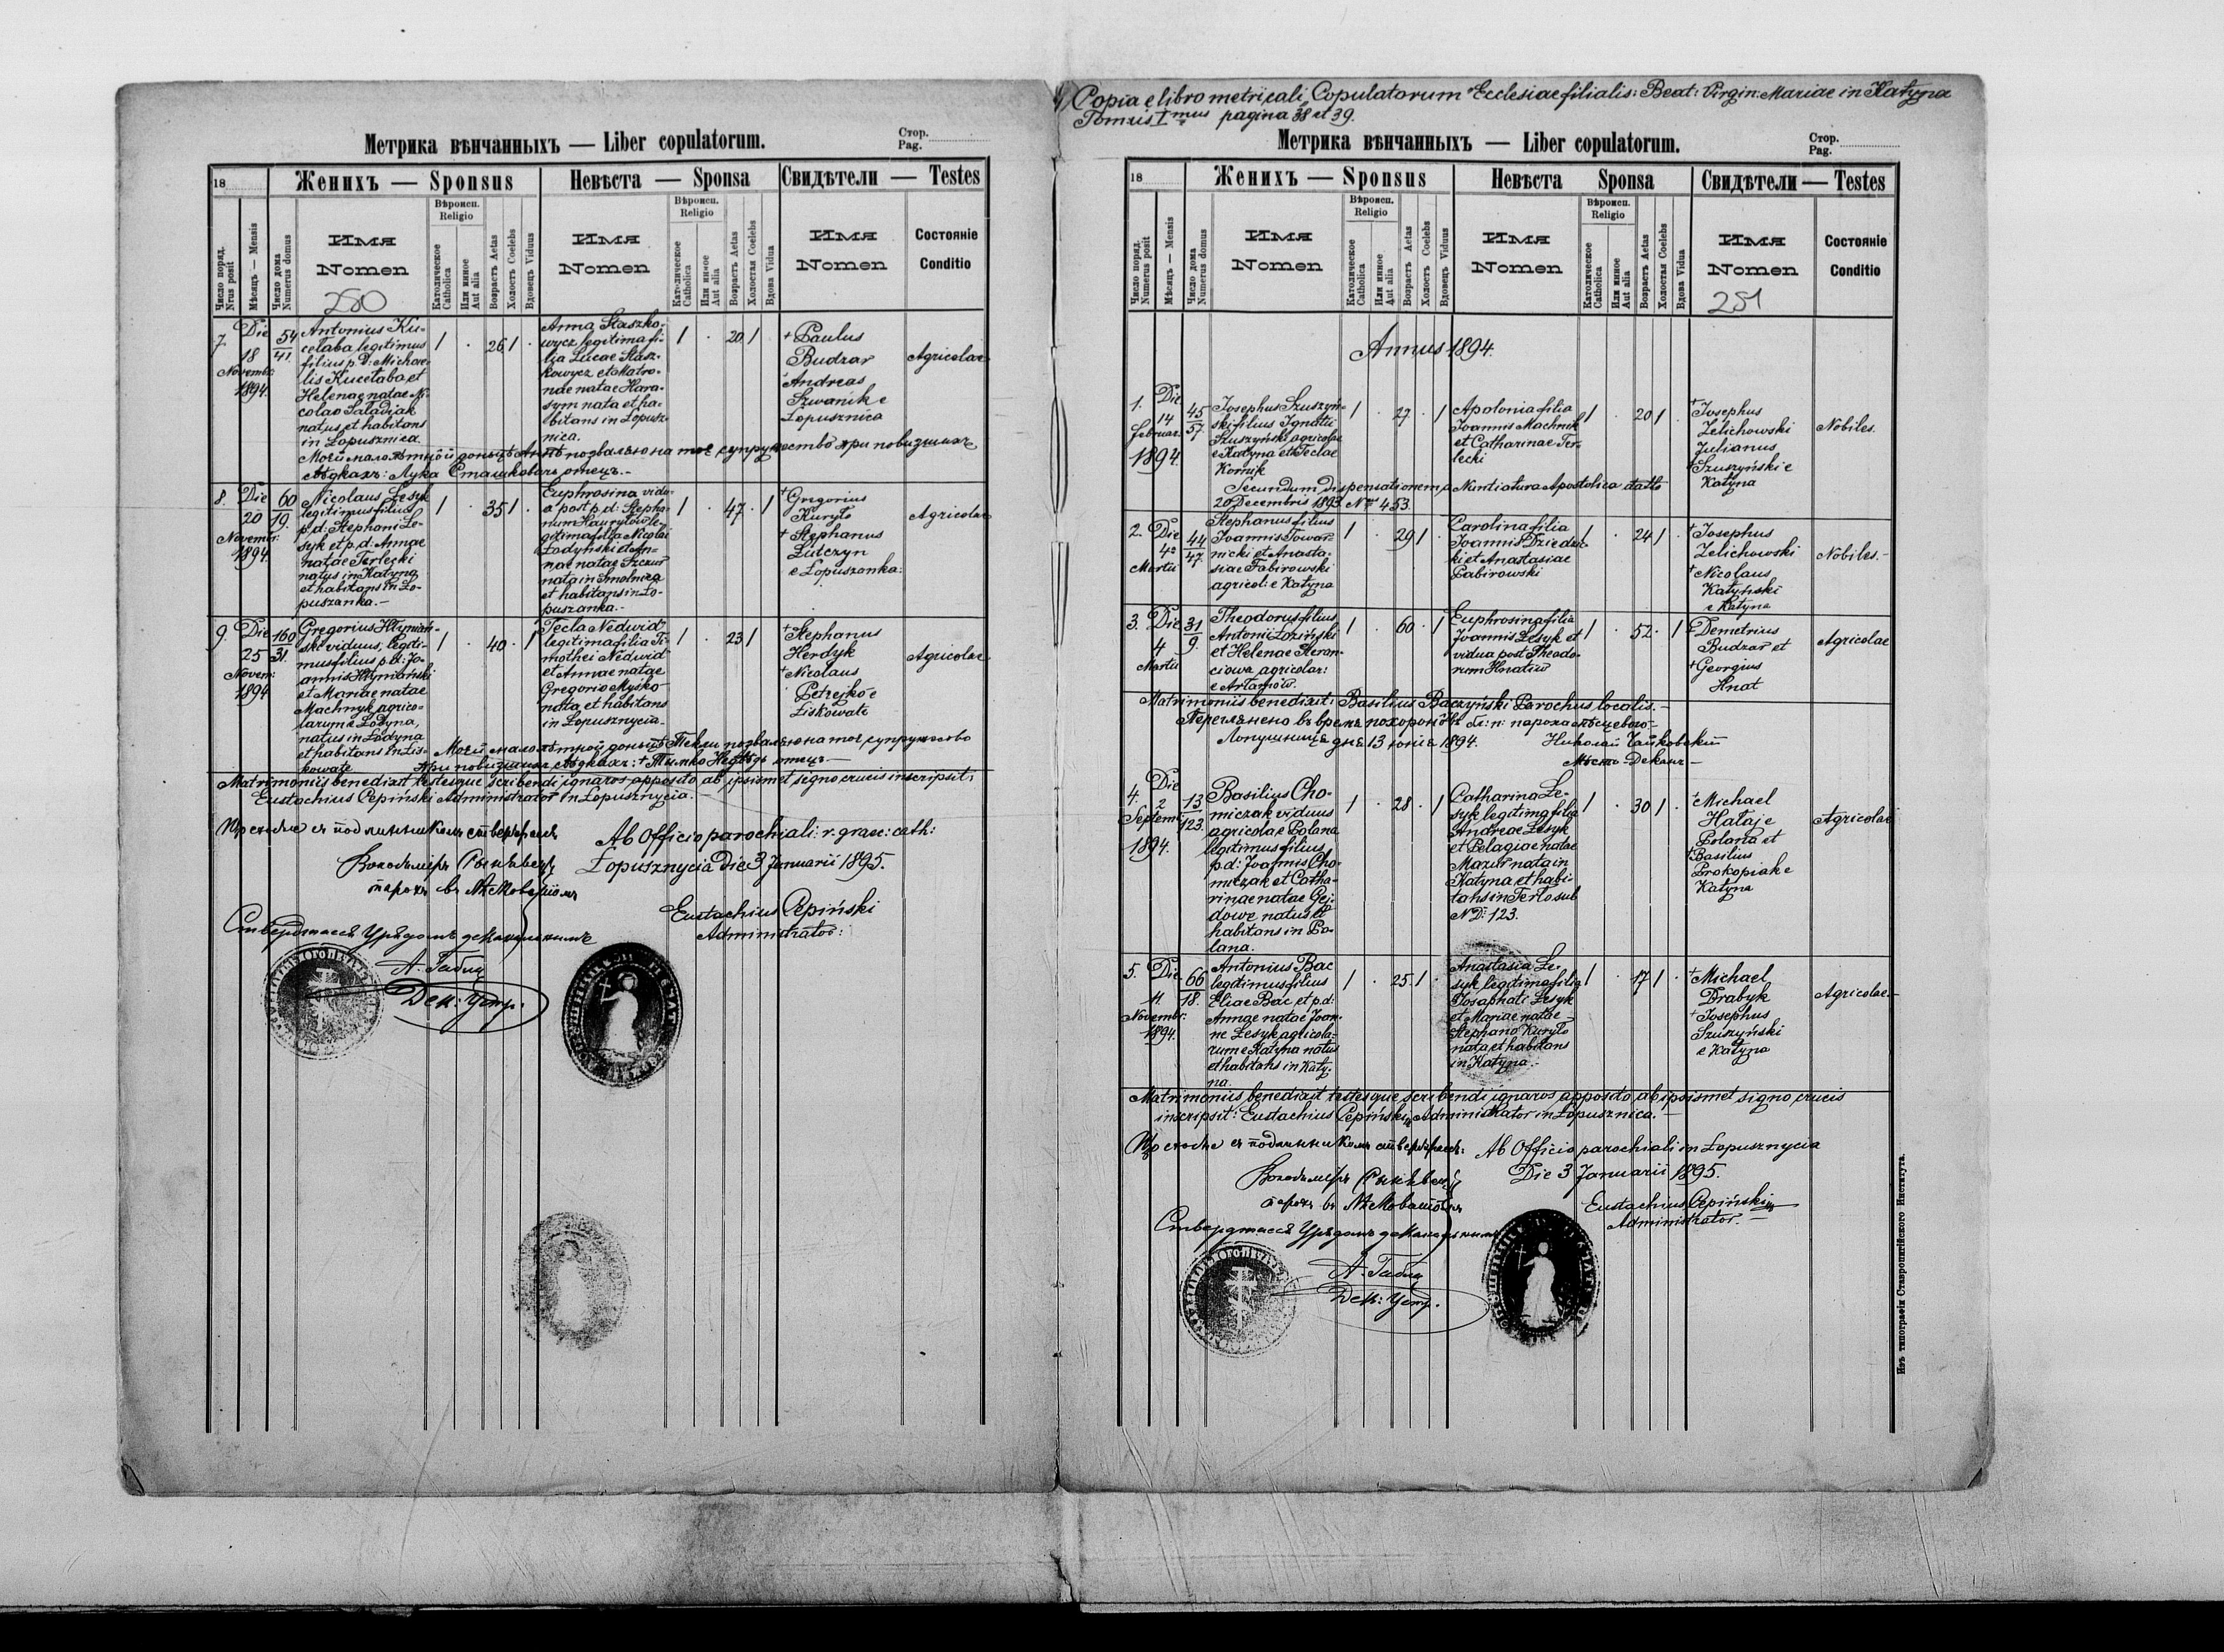 Метрика вѣнчанныхъ — Liber copulatorum.
Стор.
Pag.
18
Женихъ — Sponsus
Невѣста — Sponsa
Свидѣтели — Testes
Число поряд.
Nrus posit
Мѣсяцъ — Mensis
Число дома
Numerus domus
Имя
Nomen
280
Вѣроисп.
Religio
Католическое
Catholica
Или инное
Aut alia
Возрастъ Aetas
Холостъ Coelebs
Вдовецъ Viduus
Имя
Nomen
Вѣроисп.
Religio
Католическое
Catholica
Или инное
Aut alia
Возрастъ Aetas
Холостая Coelebs
Вдова Vidua
Имя
Nomen
Состояніе
Conditio
7.
Die
18
Novembr:
1894.
54
41.
Antonius Ku-
cetaba legitimus
filius p. D. Michae-
lis Kucetaba et
Helenae natae Ni-
colao Saladiak
natus et habitans
in Łopusznica.
1 . 26 1 .
Anna Staszko-
wycz legitima fi-
lia Lucae Stasz-
kowycz et Matro-
nae natae Hara-
sym nata et ha-
bitans in Łopusz-
nica.
1 . 20 1
+ Paulus
Budzar
+ Andreas
Szwanik e
Łopusznica
Agricolae
Моей малолѣтной доньцѣ Аннѣ позваляю на тое супружество при повизшихъ
свѣдкахъ: Лука Сташковичъ отецъ.-
8.
Die
20
Novembr:
1894.
60
19.
Nicolaus Łesyk
legitimus filius
p. d: Stephani Łe-
syk et p. d. Annae
natae Terlecki
natus in Katyna
et habitans in Ło-
puszanka.-
1 . 35 1 .
Euphrosina vidu-
a post p. d: Stepha-
num Hauryłow le-
gitima filia Nicolai
Łodyński et An-
nae natae Szczur
nata in Smolnica
et habitans in Ło-
puszanka.-
1 . 47 . 1
+ Gregorius
Kuryło
+ Stephanus
Łutczyn
e Łopuszanka:
Agricolae
9.
Die
25
Novem:
1894
160
31.
Gregorius Hłymiań-
ski viduus, legiti-
mus filius p. d: Jo-
annis Hłymiański
et Mariae natae
Machnyk agrico-
larum e Łodyna,
natus in Łodyna
et habitans in Lis-
kowate
1 . 40 . 1
Tecla Nedwid
legitima filia Ti-
mothei Nedwid
et Annae natae
Gregorio Myśko
nata et habitans
in Łopusznycia.
1 . 23 1
+ Stephanus
Herdyk
+ Nicolaus
Petrejko e
Liskowate
Agricolae
Моей малолѣтной доньцѣ Текли позваляю на тое супружество
при повизшихъ свѣдкахъ: + Тимко Недвѣдь отецъ —
Matrimoniis benedixit testesque scribendi ignaros apposito ab ipsismet signo crucis inscripsit:
Eustachius Cepiński Administrator in Łopusznycia.
Ab Officio parochiali: r. graec: cath:
Łopusznycia Die 3 Januarii 1895.
Eustachius Cepiński
Administrator:
Дек: Устр.
Copia e libro metricali Copulatorum Ecclesiae filialis: Beat: Virgin: Mariae in Katyna
Tomus Imus pagina 38 et 39.
Метрика вѣнчанныхъ — Liber copulatorum.
Стор.
Pag.
18
Женихъ — Sponsus
Невѣста Sponsa
Свидѣтели — Testes
Число поряд.
Numerus posit
Мѣсяцъ — Mensis
Число дома
Numerus domus
Имя
Nomen
Вѣроисп.
Religio
Католическое
Catholica
Или инное
Aut alia
Возрастъ Aetas
Холостъ Coelebs
Вдовецъ Viduus
Имя
Nomen
Вѣроисп.
Religio
Католическое
Catholica
Или инное
Aut alia
Возрастъ Aetas
Холостая Coelebs
Вдова Vidua
Имя
Nomen
281
Состояніе
Conditio
Annus 1894.
1.
Die
14
Februar.
1894.
45
57.
Josephus Szuszyń-
ski filius Ignatii
Szuszyński agricolae
e Katyna et Teclae
Kornik
1 . 27 . 1
Apolonia filia
Joannis Machnik
et Catharinae Ter-
lecki
1 . 20 1
+ Josephus
Zelichowski
Julianus
+ Szuszyński e
Katyna
Nobiles.
Secundum dispensationem a Nuntiatura Apostolica datto
20 Decembris 1893. Nro 453.
2.
Die
4a
Martii
44
47.
Stephanus filius
Joannis Towar-
nicki et Anasta-
siae Fabirowski
agricol: e Katyna
1 . 29 1 .
Carolina filia
Joannis Dziedzic-
ki et Anastasiae
Fabirowski
1 . 24 1 .
+ Josephus
Zelichowski
+ Nicolaus
Katyński
e Katyna
Nobiles.-
3.
Die
4
Martii
31
9.
Theodorus filius
Antonii Łoziński
et Helenae Heron-
ciowa agricolar:
e Artamów.
1 . 60 . 1
Euphrosina filia
Joannis Łesyk et
vidua post Theodo-
rum Hnatiw
1 . 52 . 1
+ Demetrius
Budzar et
+ Georgius
Hnat
Agricolae
Matrimoniis benedixit: Basilius Baczyński Parochus localis.-
Переглянено въ время похоронôвъ бл: п: пароха мѣсцевого-
Лопушниця дня 13 юнія 1894. Николай Чайковскій
Мѣсто-Деканъ —
4.
Die
2
Septemr.
1894.
13
123.
Basilius Cho-
miczak viduus
agricola e Polana
legitimus filius
p. d: Joannis Cho-
miczak et Catha-
rinae natae Gej-
dowe natus et
habitans in Po-
lana.
1 . 28 . 1
Catharina Łe-
syk legitima filia
Andreae Łesyk
et Pelagiae natae
Mazur nata in
Katyna et habi-
tans in Terło sub
N. D: 123.
1 . 30 1 .
+ Michael
Hałaj e
Polana et
+ Basilius
Prokopiak e
Katyna
Agricolae
5.
Die
11
Novembr:
1894.
66
18.
Antonius Bac
legitimus filius
Eliae Bac et p. d:
Annae natae Joan-
ne Łesyk agricola-
rum e Katyna natus
et habitans in Katy-
na.
1 . 25 1 .
Anastasia Łe-
syk legitima filia
Josaphati Łesyk
et Mariae natae
Stephano Kuryło
nata et habitans
in Katyna.-
1 . 17 1 .
+ Michael
Drabyk
+ Josephus
Szuszyński
e Katyna
Agricolae.-
Matrimoniis benedixit testesque scribendi ignaros apposito ab ipsismet signo crucis
inscripsit: Eustachius Cepiński Administrator in Łopusznica.-
Ab Officio parochiali in Łopusznycia
Die 3 Januarii 1895.
Eustachius Cepiński
Administrator.-
Дек: Устр.
Изъ типографіи Ставропигійского Института.